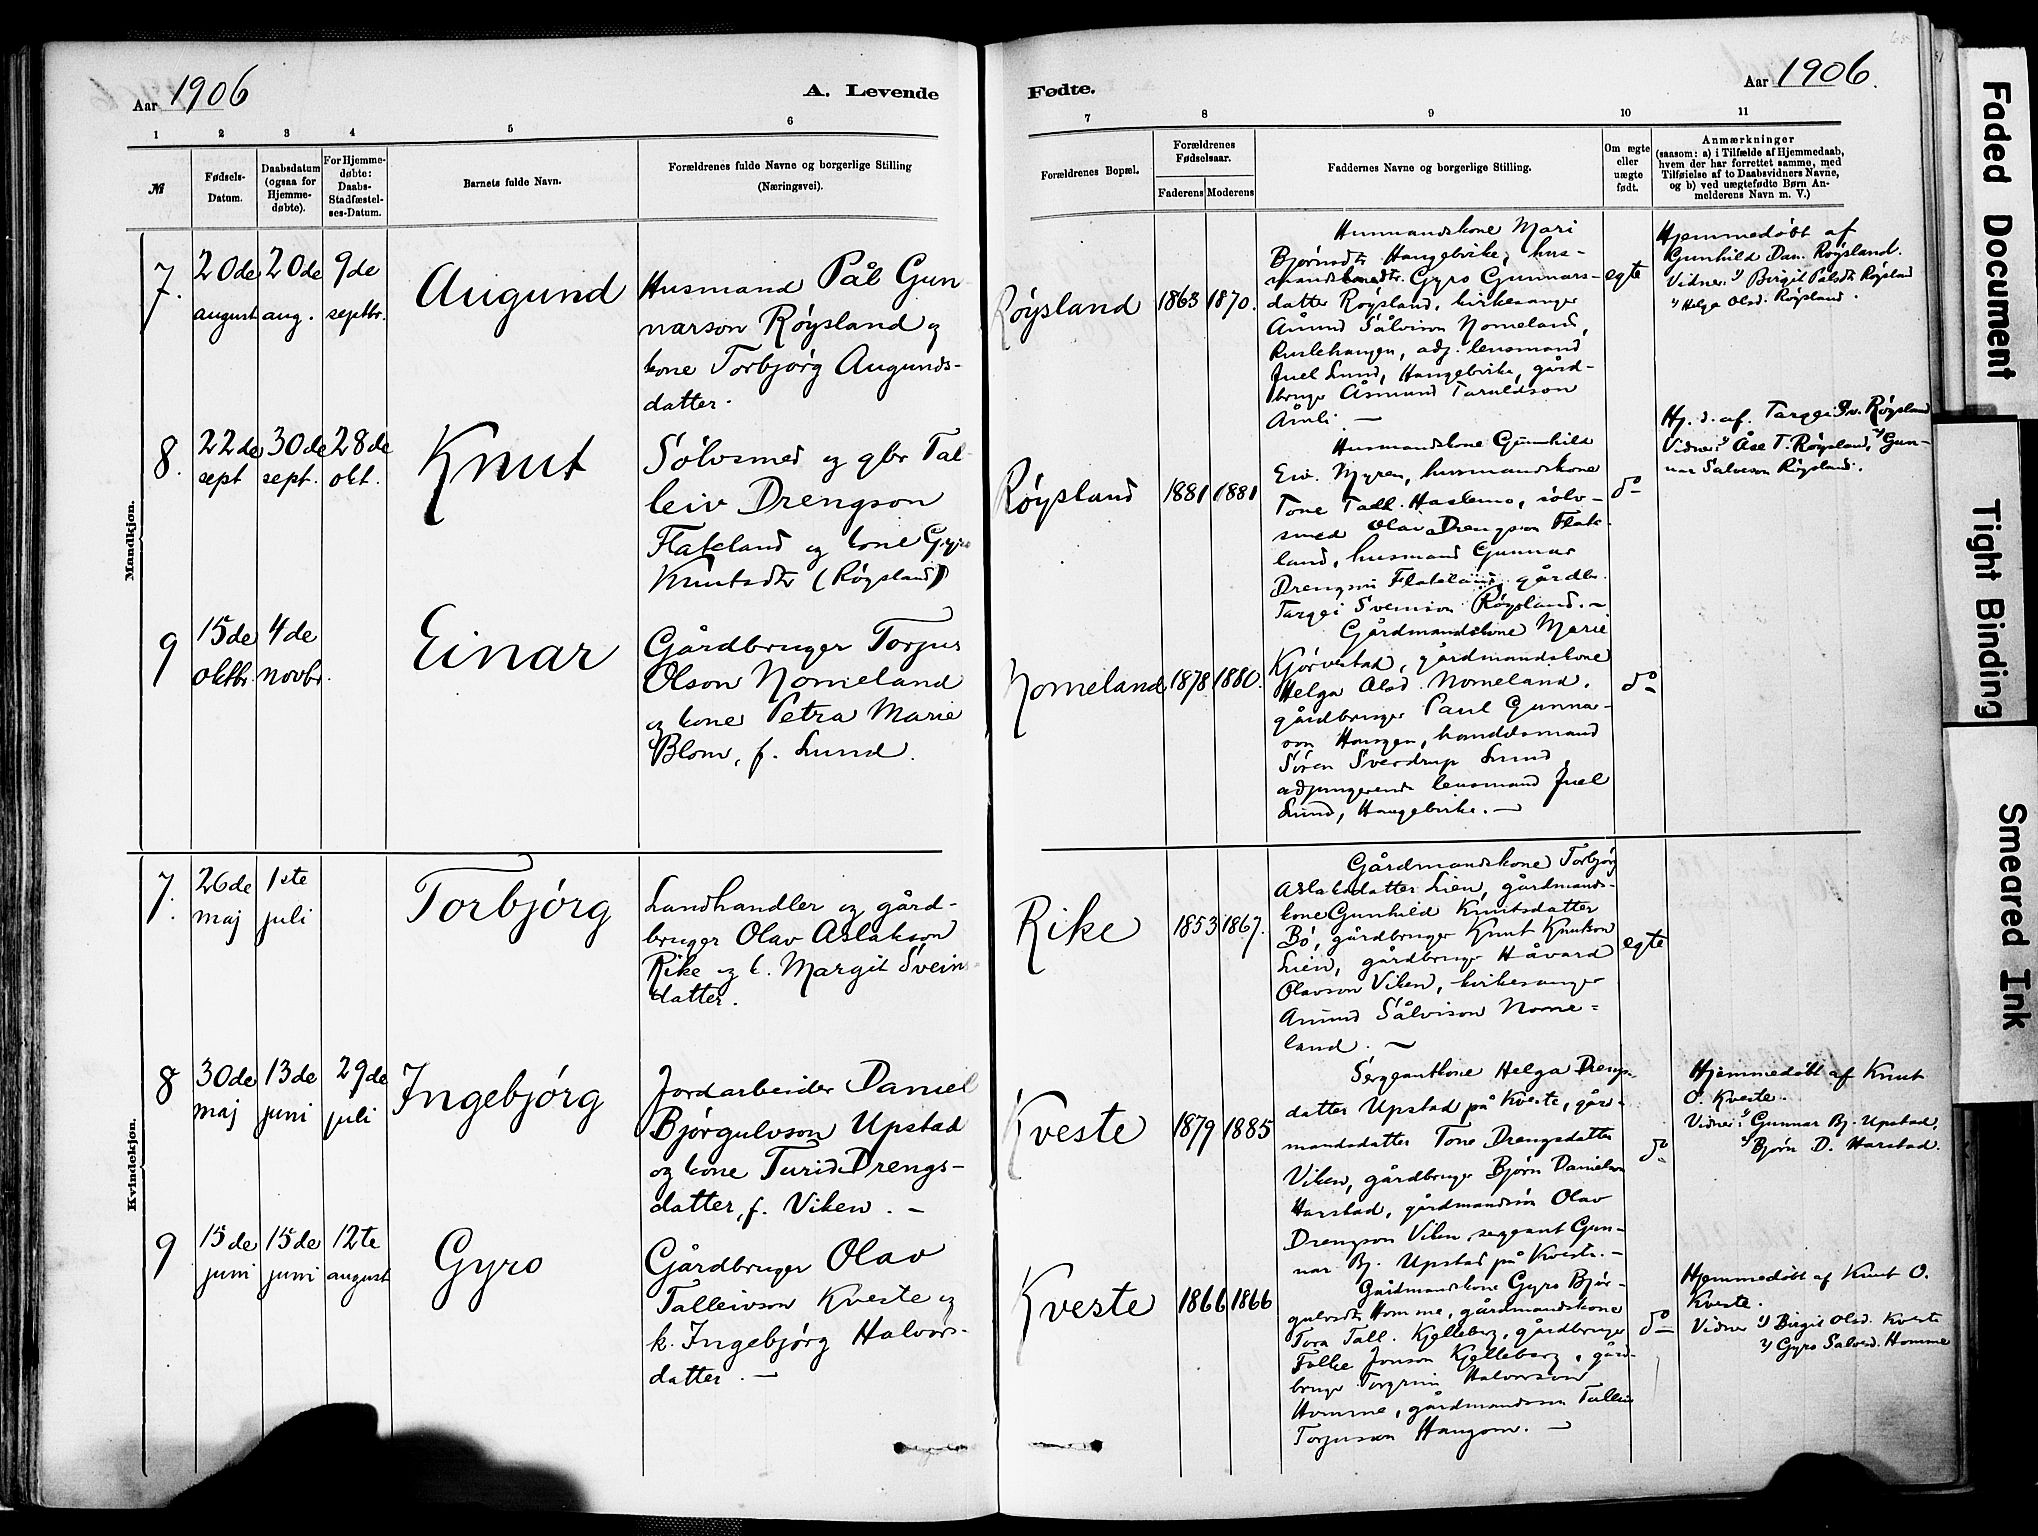 Aar 1906
A. Levende
Fødte.
Aar 1906.
1 2 3 4 5 6 7 8 9 10 11
№
Fødsels-
Datum.
Daabsdatum
(ogsaa for
Hjemme-
døbte).
For Hjemme-
døbte:
Daabs-
Stadfæstel-
ses-Datum.
Barnets fulde Navn.
Forældrenes fulde Navne og borgerlige Stilling
(Næringsvei).
Forældrenes Bopæl.
Forældrenes
Fødselsaar.
Faderens Moderens
Faddernes Navne og borgerlige Stilling.
Om ægte
eller
uægte
født.
Anmærkninger
(saasom: a) i Tilfælde af Hjemmedaab,
hvem der har forrettet samme, med
Tilføielse af to Daabsvidners Navne,
og b) ved uægtefødte Børn An-
melderens Navn m. V.)
Mandkjøn.
7.
20de
august
20de
aug.
9de
septbr.
Augund
Husmand Pål Gun-
narson Røysland og
kone Torbjørg Augunds-
datter.
Røysland
1863
1870.
Husmandskone Mari
Bjørnsdtr Haugebirke, hus-
Gyro Gunnars-
datter Røysland, kirkesanger
Åmund Sålvison Nomeland,
adj. lensmand
Juel Lund, Haugebirke, gård-
bruger Åsmund Taraldson
Åmli. —
egte
Hjemmedøbt af
Gunhild Dan. Røysland.
Vidner 1) Birgit Palsdtr Røysland
2) Helga Olsd. Røysland.
8.
22de
sept
30de
sept.
28de
okt.
Knut
Sølvsmed og gbr Tal-
leiv Drengson
Flateland og kone Gyro
Knutsdtr (Røysland)
Røysland
1881
1881
Husmandskone Gunhild
Eiv. Myren, husmandskone
Tone Tall. Haslemo, sølv-
smed Olav Drengson Flate-
land, husmand Gunnar
Drengson Flateland, gårdbr.
Targei Sveinson Røysland. —
do
Hj. d. af. Targei Sv. Røysland
Vidner 1) Åse T. Røysland, 2) Gun-
nar Salveson Røysland.
9
15de
oktbr.
4de
novbr.
Einar
Gårdbruger Torjus
Olson Nomeland
og kone Petra Marie
Blom, f. Lund.
Nomeland
1878
1880.
Gårdmandskone Marie
Kjørvestad, gårdmandskone
Helga Olsd. Nomeland,
gårdbruger Paul Gunnar-
son Haugen, handelsmand
Søren Sverdrup Lund,
adjungerende lensmand Juel
Lund, Haugebirke. —
do
Kvindekjøn.
7.
26de
maj
1ste
juli
Torbjørg
Landhandler og gård-
bruger Olav Aslakson
Rike og k. Margit Sveins-
datter.
Rike
1853
1867.
Gårdmandskone Torbjørg
Aslaksdatter Lien, gårdmands-
kone Gunhild Knutsdatter
Bø, gårdbruger Knut Knutson
Lien, gårdbruger Håvard
Olavson Viken, kirkesanger
Åmund Sålvison Nome-
land. —
egte
8
30de
maj
13de
juni
29de
juli
Ingebjørg
Jordarbeider Daniel
Bjørgulvson Upstad
og kone Turid Drengs-
datter, f. Viken. —
Kveste
1879
1885
Sergeantkone Helga Drengs-
datter Upstad på Kveste, gård-
mandsdatter Tone Drengsdatter
Viken, gårdbruger Bjørn Danielson
Harstad, gårdmandsøn Olav
Drengson Viken, sergeant Gun-
nar Bj. Upstad på Kveste. —
do
Hjemmedøbt af Knut
O. Kveste.
Vidner 1) Gunnar Bj. Upstad,
2) Bjørn D. Harstad.
9
15de
juni
15de
juni
12te
august
Gyro
Gårdbruger Olav
Talleivson Kveste og
k. Ingebjørg Halvors-
datter. —
Kveste
1866
1866
Gårdmandskone Gyro Bjør-
gulvsdtr Homme, gårdmandskone
Tora Tall. Kjelleberg, gårdbruger
Folke Jonson Kjelleberg, gård-
bruger Torgrim Halvorson
Homme, gårdmandsson Talleiv
Torjusson Haugom. —
do
Hjemmedøbt af Knut O.
Kveste.
Vidner 1) Birgit Olsd. Kveste
2) Gyro Salvesd. Homme
Faded Document
Tight Binding
Smeared Ink